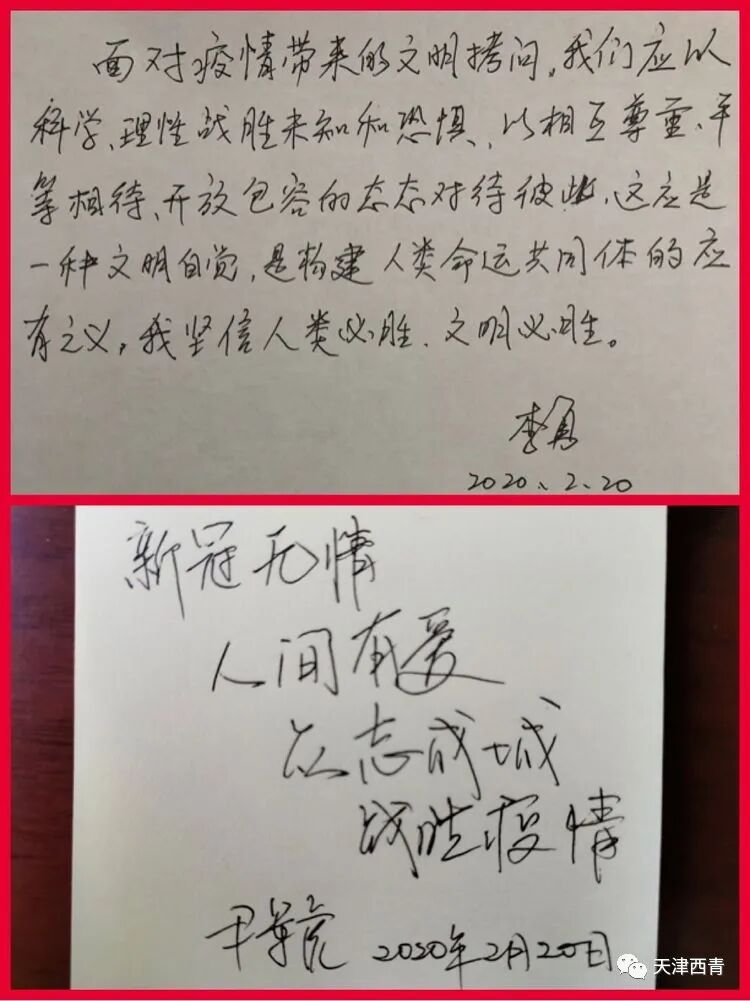 面对疫情带来的文明拷问,我们应以
科学、理性战胜未知和恐惧、以相互尊重、平
等相待、开放包容的态态对待彼此,这应是
一种文明自觉,是构建人类命运共同体的应
有之义,我坚信人类必胜、文明必胜。
李勇
2020、2.20
新冠无情
人间有爱
众志成城
战胜疫情
2020年2月20日
天津西青